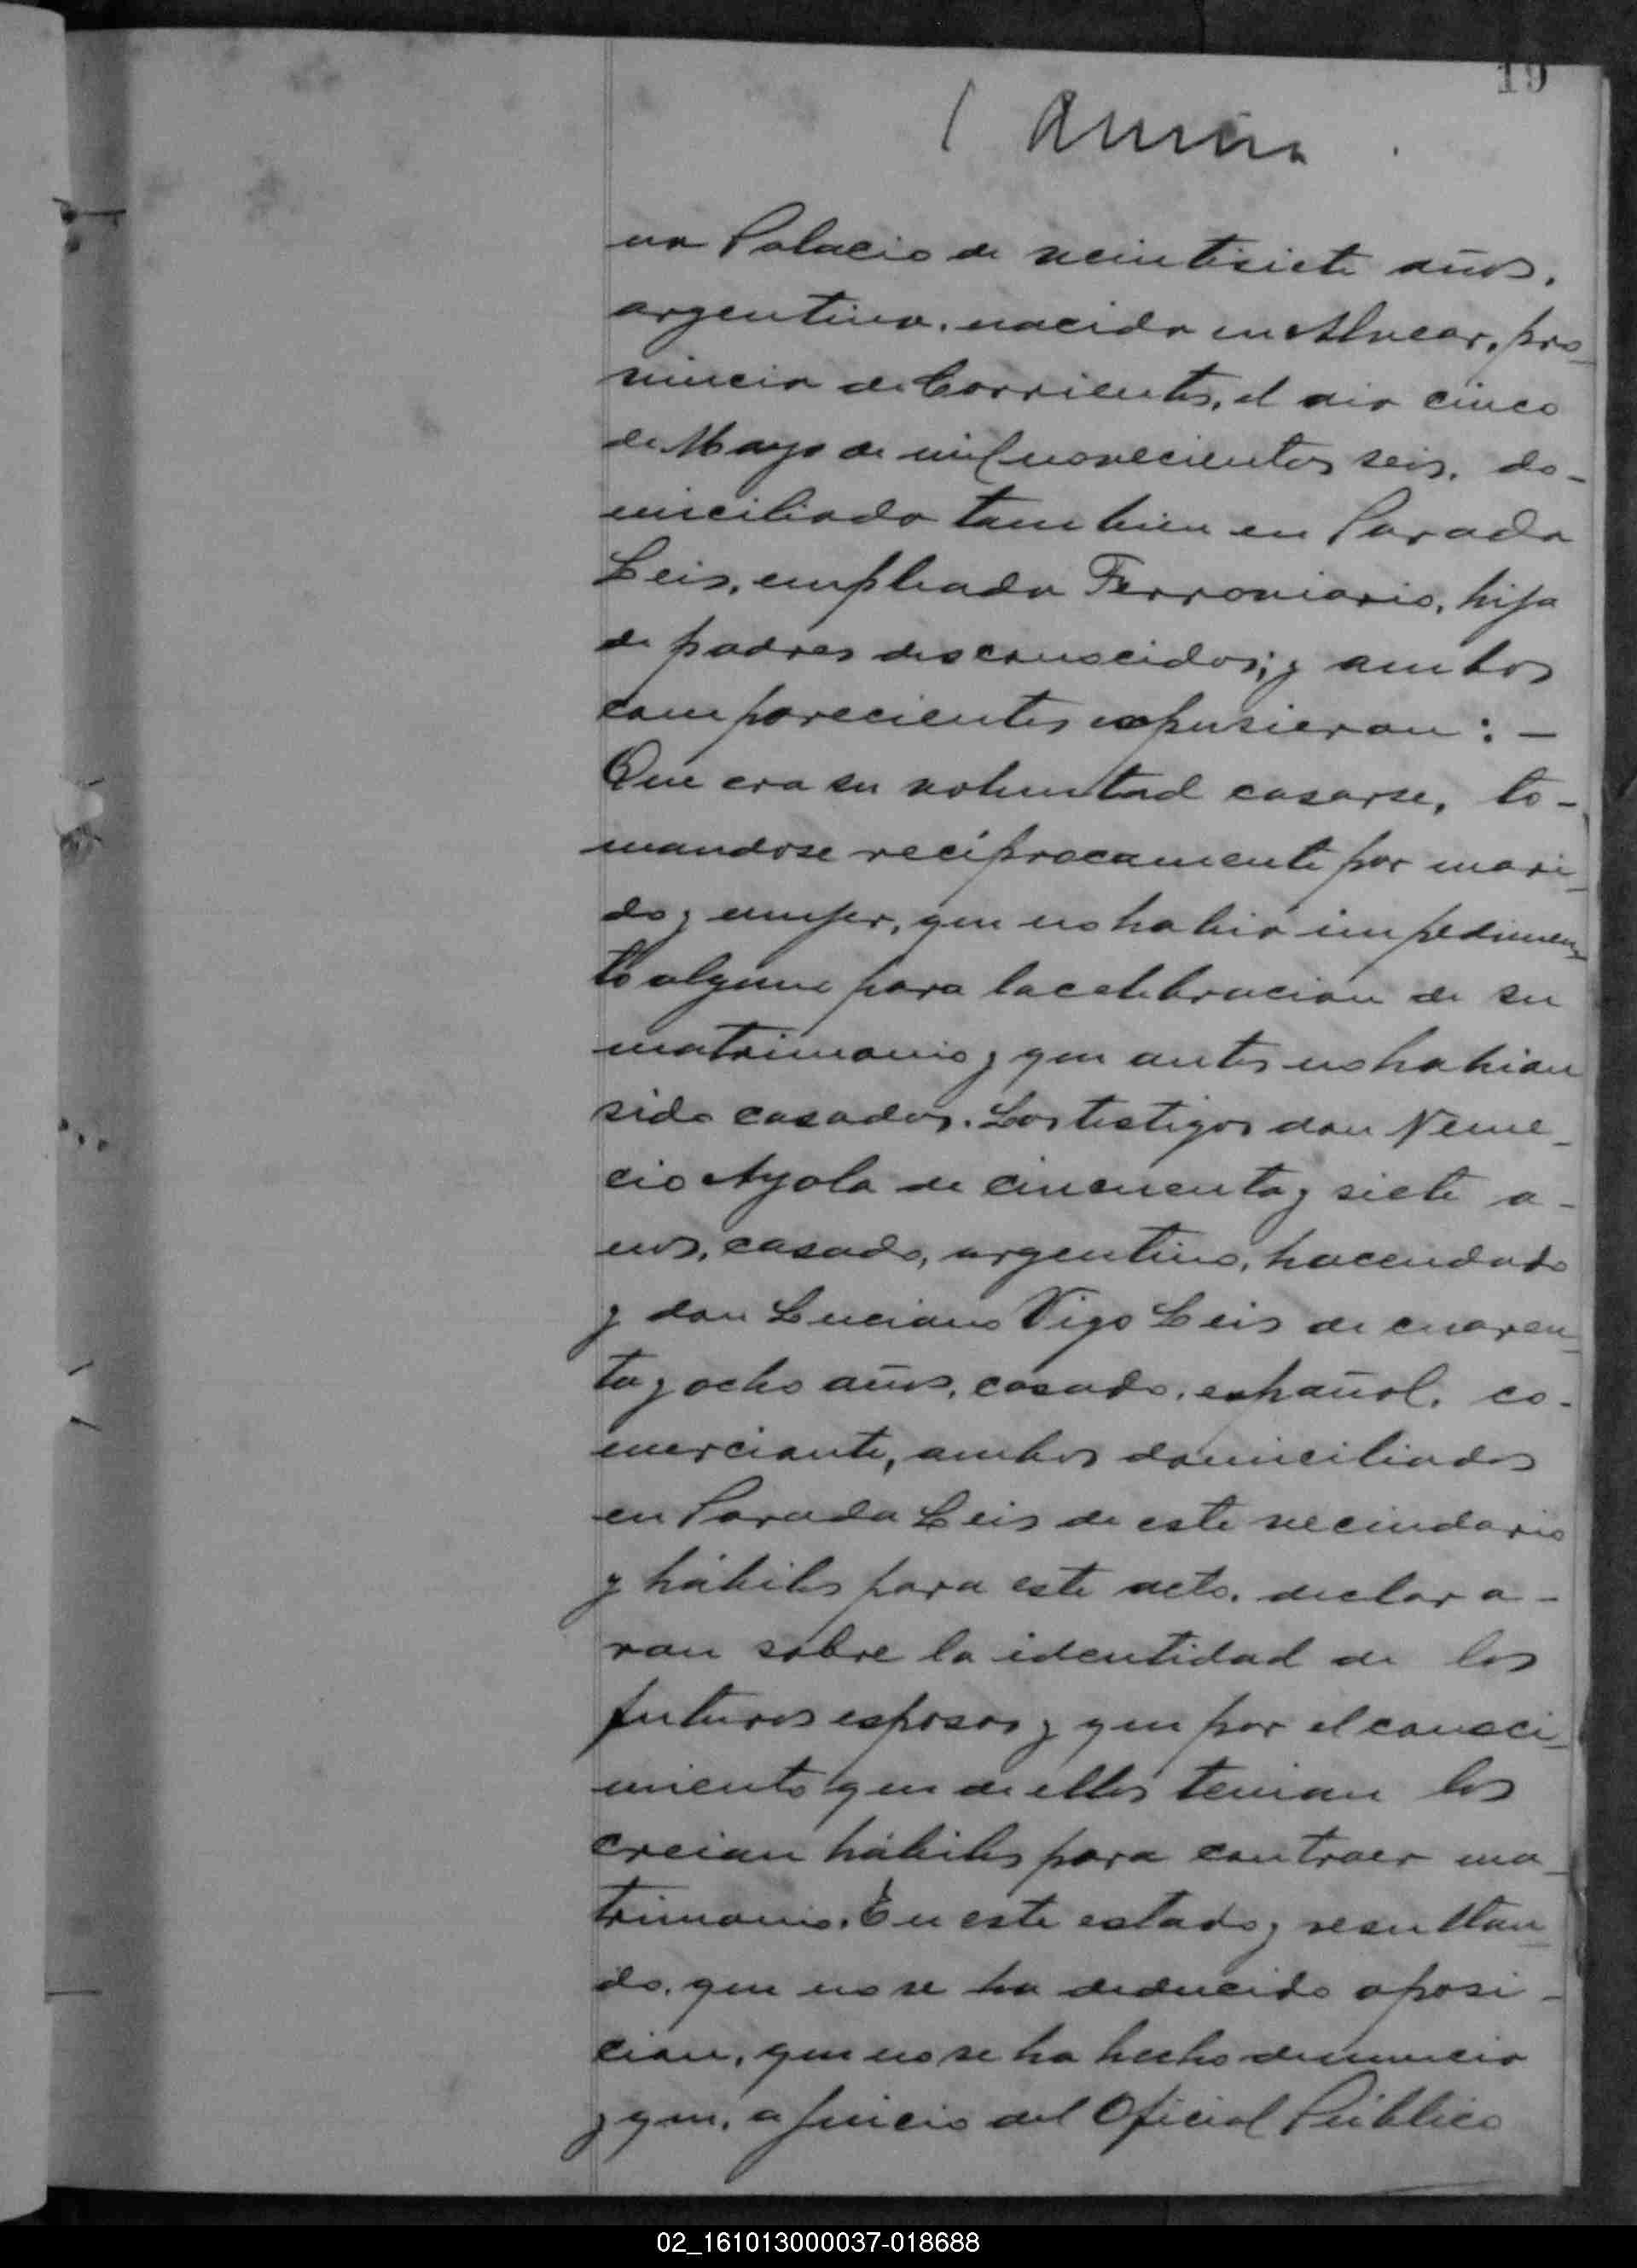 19
na Palacio de veintisiete años,
argentina, nacida en Alvear, pro-
vincia de Corrientes, el dia cinco
de Mayo de mil novecientos seis, do-
miciliada tambien en Parada
Leis, empleada Ferroviario, hija
de padres desconocidos; y ambos
comparecientes expusieron: —
Que era su voluntad casarse, to-
mandose recíprocamente por mari-
do y mujer, que no habia impedimen-
to alguno para la celebracion de su
matrimonio y que antes no habian
sido casados. Los testigos don Neme-
cio Ayala de cincuenta y siete a-
nos, casado, argentino, hacendado
y don Luciano Vigo Leis de cuaren-
ta y ocho años, casado, español, co-
merciante, ambos domiciliados
en Parada Leis de este vecindario
y hábiles para este acto, declara-
ron sobre la identidad de los
futuros esposos y que por el conoci-
miento que de ellos tenian los
creian hábiles para contraer ma-
trimonio. En este estado y resultan-
do, que no se ha deducido oposi-
cion, que no se ha hecho denuncia
y que, a juicio del Oficial Público
02_161013000037-018688